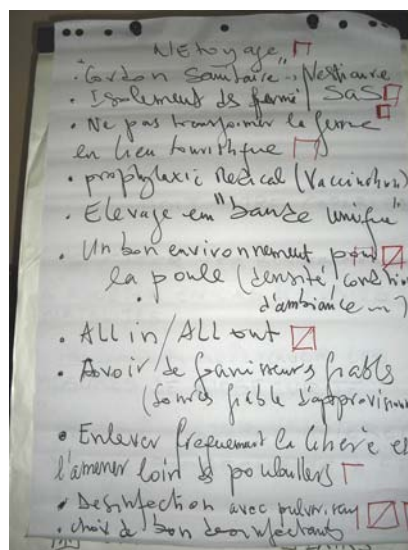 Nettoyage
"Cordon Sanitaire" .. Vestiaire
• Isolement ds ferme / SaS
• Ne pas transformer la ferme
en lieu touristique
• prophylaxie Medical (Vaccination)
• Elevage en "bande unique"
• Un bon environnement pour
la poule (densité, condition
d'ambiance ...)
• All in / All out
• Avoir de fournisseurs fiables
(Source fiable d'approvision
• Enlever frequement la litière et
l'amener loin ds poulaillers
• Desinfection avec pulverisay
• choix de bon desinfectants